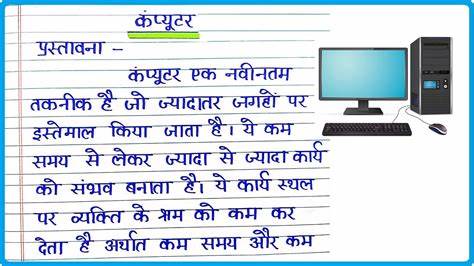 कंप्यूटर
प्रस्तावना –
कंप्यूटर एक नवीनतम
तकनीक है जो ज्यादातर जगहों पर
इस्तेमाल किया जाता है। ये कम
समय से लेकर ज्यादा से ज्यादा कार्य
को संभव बनाता है। ये कार्य स्थल
पर व्यक्ति के श्रम को कम कर
देता है अर्थात कम समय और कम